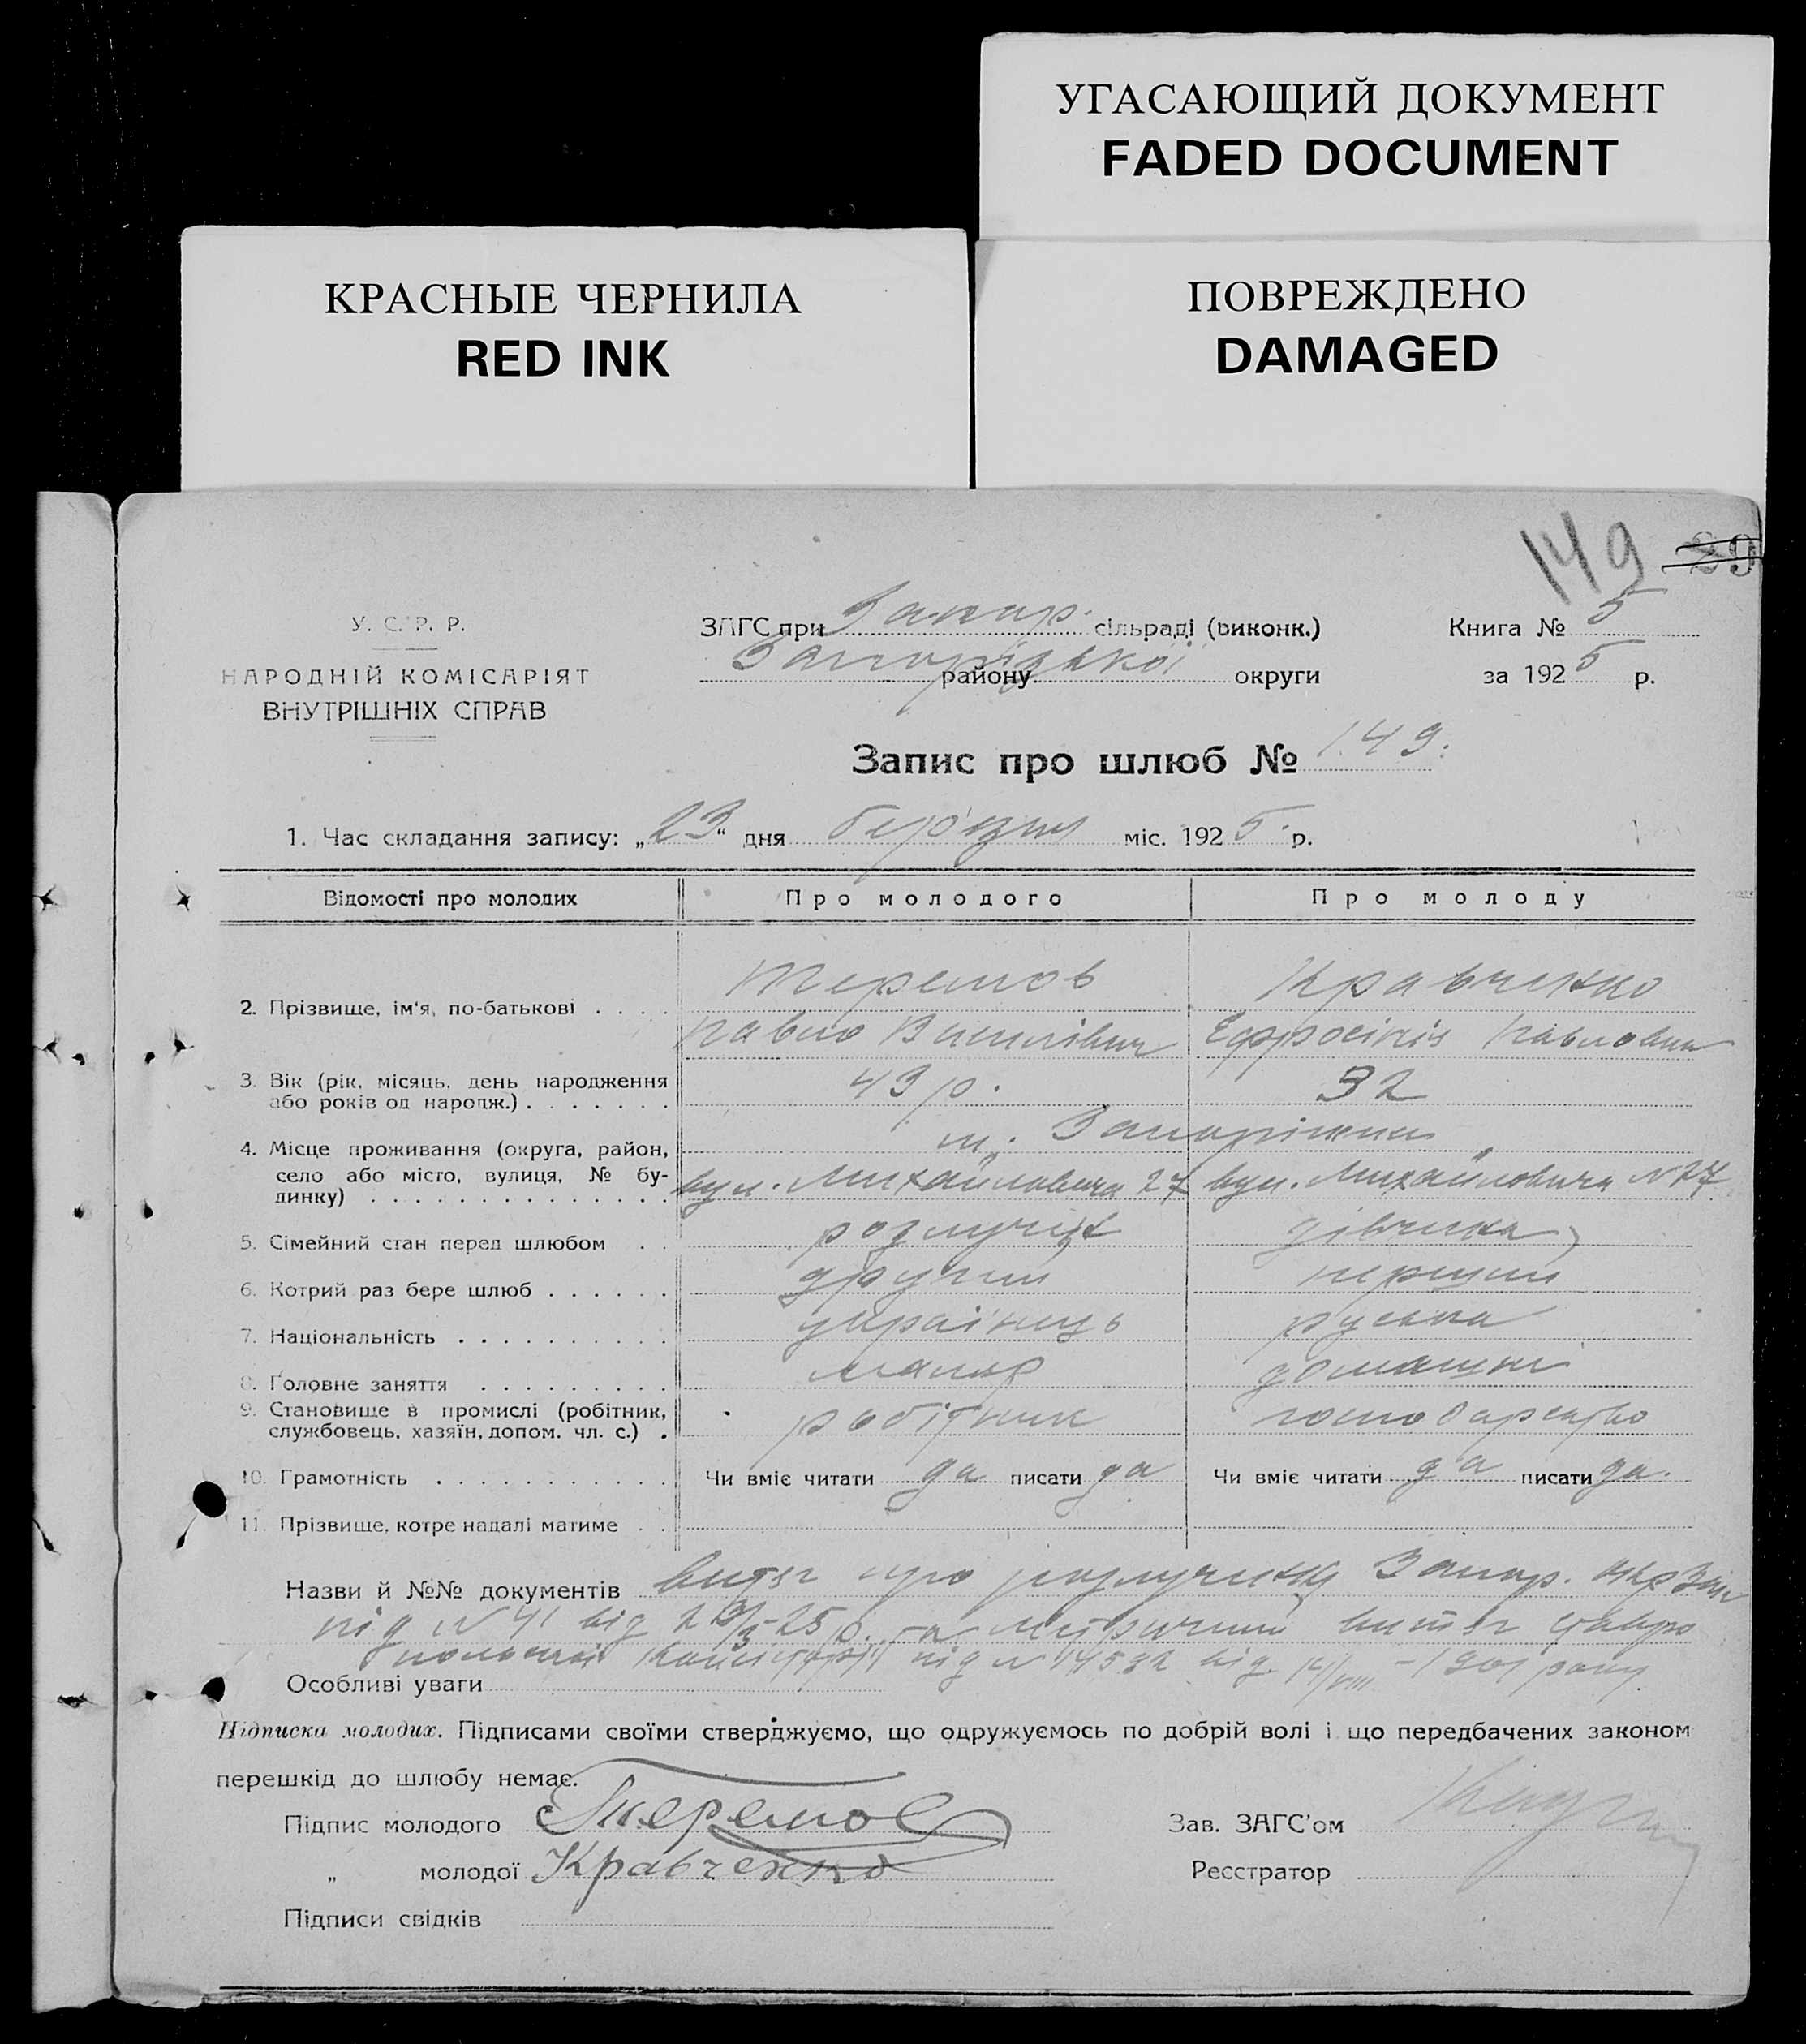 УГАСАЮЩИЙ ДОКУМЕНТ
FADED DOCUMENT
КРАСНЫЕ ЧЕРНИЛА
RED INK
ПОВРЕЖДЕНО
DAMAGED
149 29
У. С. Р. Р.
НАРОДНІЙ КОМІСАРІЯТ
ВНУТРІШНІХ СПРАВ
ЗАГС при Запор. сільраді (виконк.)
Запорізької району округи
Книга № 5
за 1925 р.
Запис про шлюб № 149.
1. Час складання запису: „23“ дня березня міс. 1925 р.
Відомості про молодих Про молодого Про молоду
2. Прізвище, ім'я, по-батькові
Терешов Кравченко
Павло Василівич Ефросінія Павловна
3. Вік (рік, місяць, день народження
або років од народж.)
43 р. 32
4. Місце проживання (округа, район,
село або місто, вулиця, № бу-
динку)
м. Запоріжжя
вул. Михайловича 27 вул. Михайловича N 27
5. Сімейний стан перед шлюбом дівчина
6. Котрий раз бере шлюб другий перший
7. Національність українець руська
8. Головне заняття маляр домашнє
9. Становище в промислі (робітник,
службовець, хазяїн, допом. чл. с.)
робітник господарство
10. Грамотність Чи вміє читати да писати да Чи вміє читати да писати да.
11. Прізвище, котре надалі матиме
Назви й №№ документів витяг про Запор.
під N 41 від 25 р. та метричний витяг
під N 14532 від 14/VIII - 1901 року.
Особливі уваги
Підписка молодих. Підписами своїми стверджуємо, що одружуємось по добрій волі і що передбачених законом
перешкід до шлюбу немає.
Підпис молодого Терешов
„ молодої Кравченко
Підписи свідків
Зав. ЗАГС'ом
Реєстратор